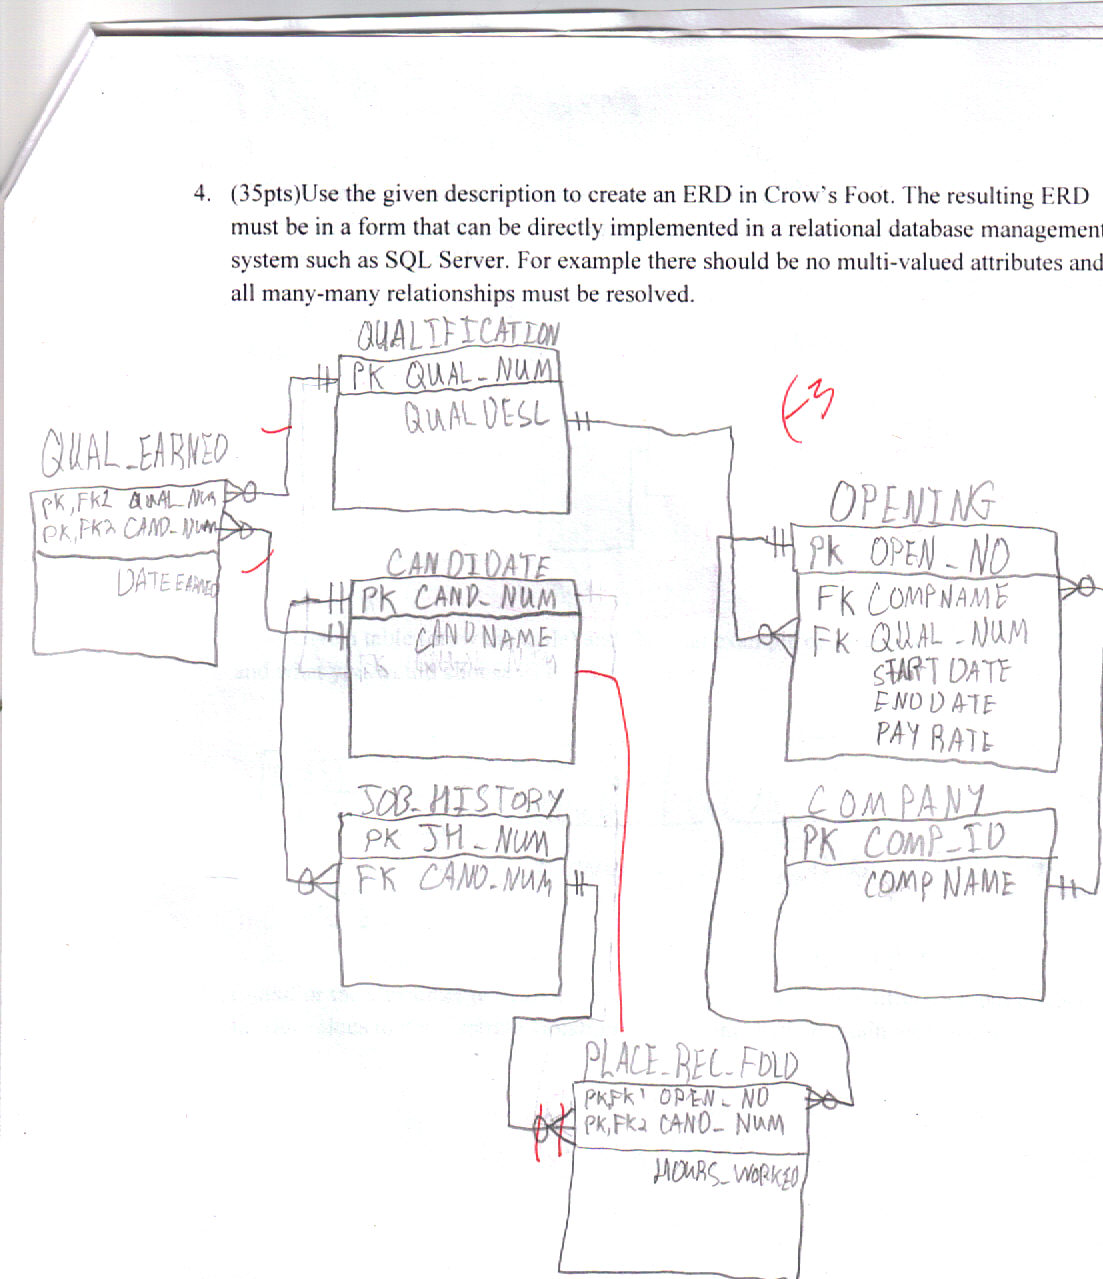 4. (35pts)Use the given description to create an ERD in Crow's Foot. The resulting ERD
must be in a form that can be directly implemented in a relational database management
system such as SQL Server. For example there should be no multi-valued attributes and
all many-many relationships must be resolved.
QUALIFICATION
PK QUAL_NUM
QUALDESC
-3
QUAL_EARNED
PK,FK1 QUAL_NUM
PK,FK2 CAND_NUM
DATE EARNED
CANDIDATE
PK CAND_NUM
CANDNAME
OPENING
PK OPEN_NO
FK COMPNAME
FK QUAL_NUM
START DATE
END DATE
PAY RATE
JOB_HISTORY
PK JH_NUM
FK CAND_NUM
COMPANY
PK COMP_ID
COMPNAME
PLACE_REC_FOLD
PK,FK1 OPEN_NO
PK,FK2 CAND_NUM
HOURS_WORKED